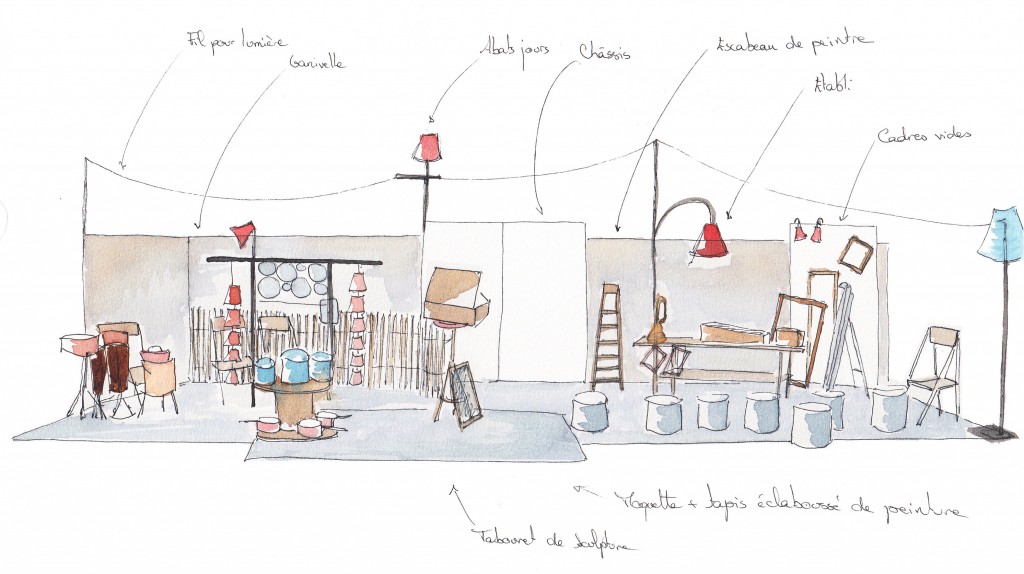 Fil pour lumière
Ganivelle
Abats jours
Châssis
Escabeau de peintre
Etabli
Cadres vides
Moquette + tapis éclaboussé de peinture
Tabouret de sculpture